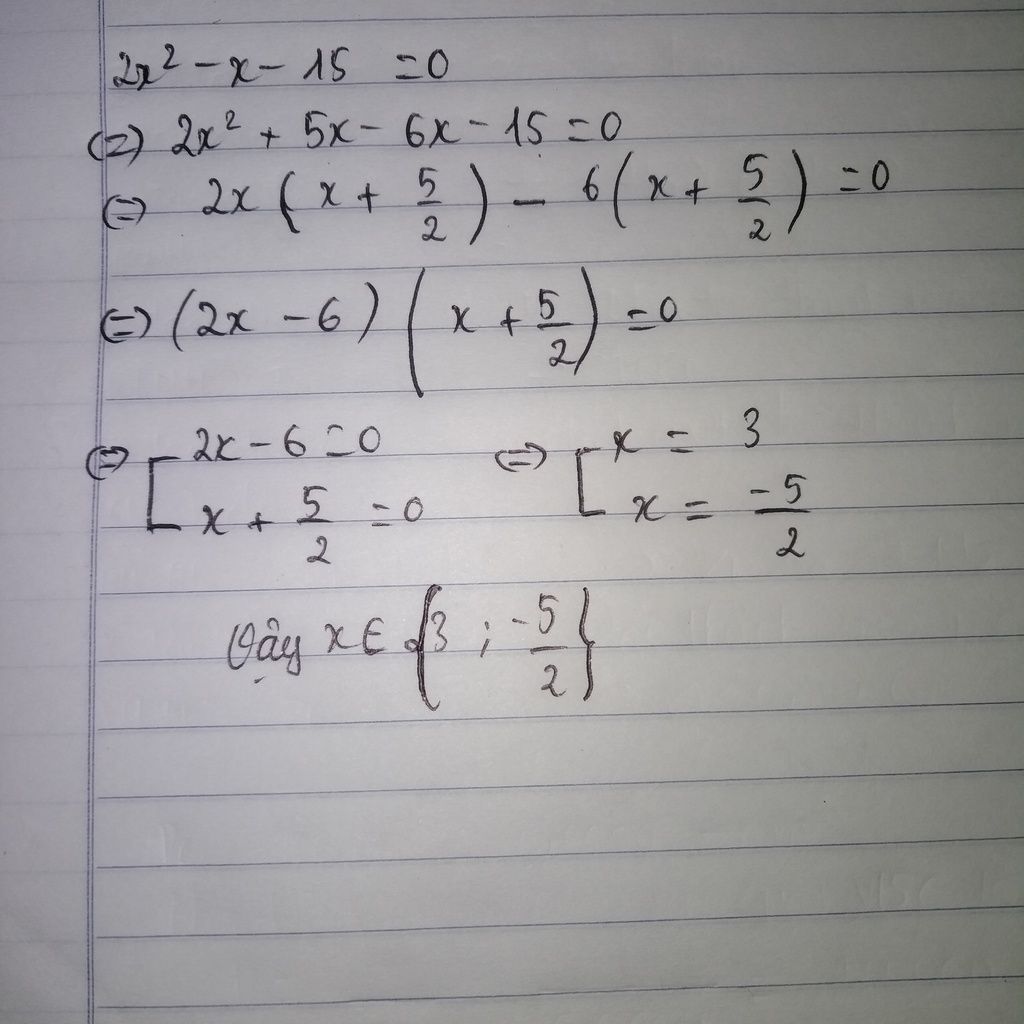 2x² - x - 15 = 0
(=) 2x² + 5x - 6x - 15 = 0
(=) 2x ( x + 5/2 ) - 6 ( x + 5/2 ) = 0
(=) (2x - 6) ( x + 5/2 ) = 0
(=) [ 2x - 6 = 0 (=) [ x = 3
x + 5/2 = 0 x = -5/2
Vậy x ∈ { 3 ; -5/2 }